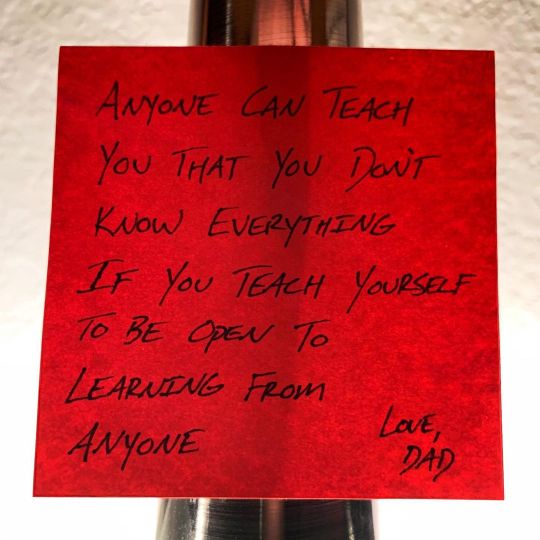 ANYONE CAN TEACH
YOU THAT YOU DON'T
KNOW EVERYTHING
IF YOU TEACH YOURSELF
TO BE OPEN TO
LEARNING FROM
ANYONE
LOVE,
DAD